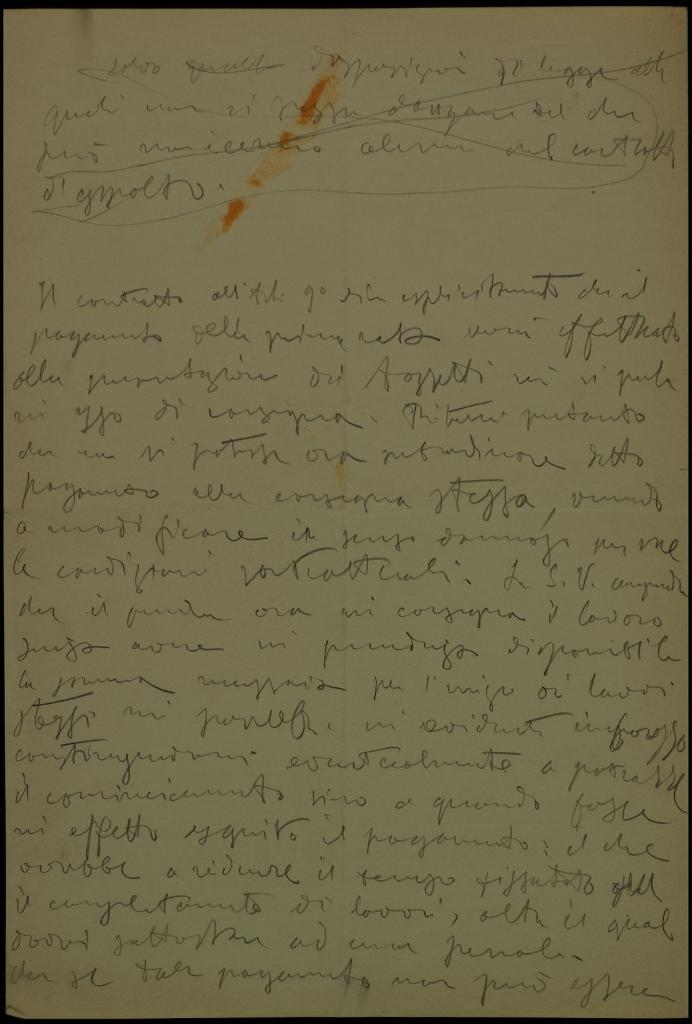 salvo disposizioni di legge alle
quali non si possa derogare del che
però non alcun nel contratto
d'appalto.
Il contratto all'art. 9° dice esplicitamente che il
pagamento della prima rata verrà effettuato
alla presentazione dei si parla
di consegna. Ritenni pertanto
che non si potesse ora subordinare detto
pagamento alla consegna stessa, venendo
a modificare in senso dannoso per me
le condizioni contrattuali. La S. V. comprende
che il prender ora in consegna il lavoro
senza avere in precedenza disponibile
la somma necessaria per l'inizio dei lavori
stessi mi porrebbe in evidente imbarazzo
costringendomi eventualmente a protrarre
il cominciamento sino a quando fosse
in effetto eseguito il pagamento: il che
verrebbe a ridurre il tempo fissato
il completamento di lavori, oltre il quale
dovrei sottostare ad una penale.
che se tale pagamento non può essere